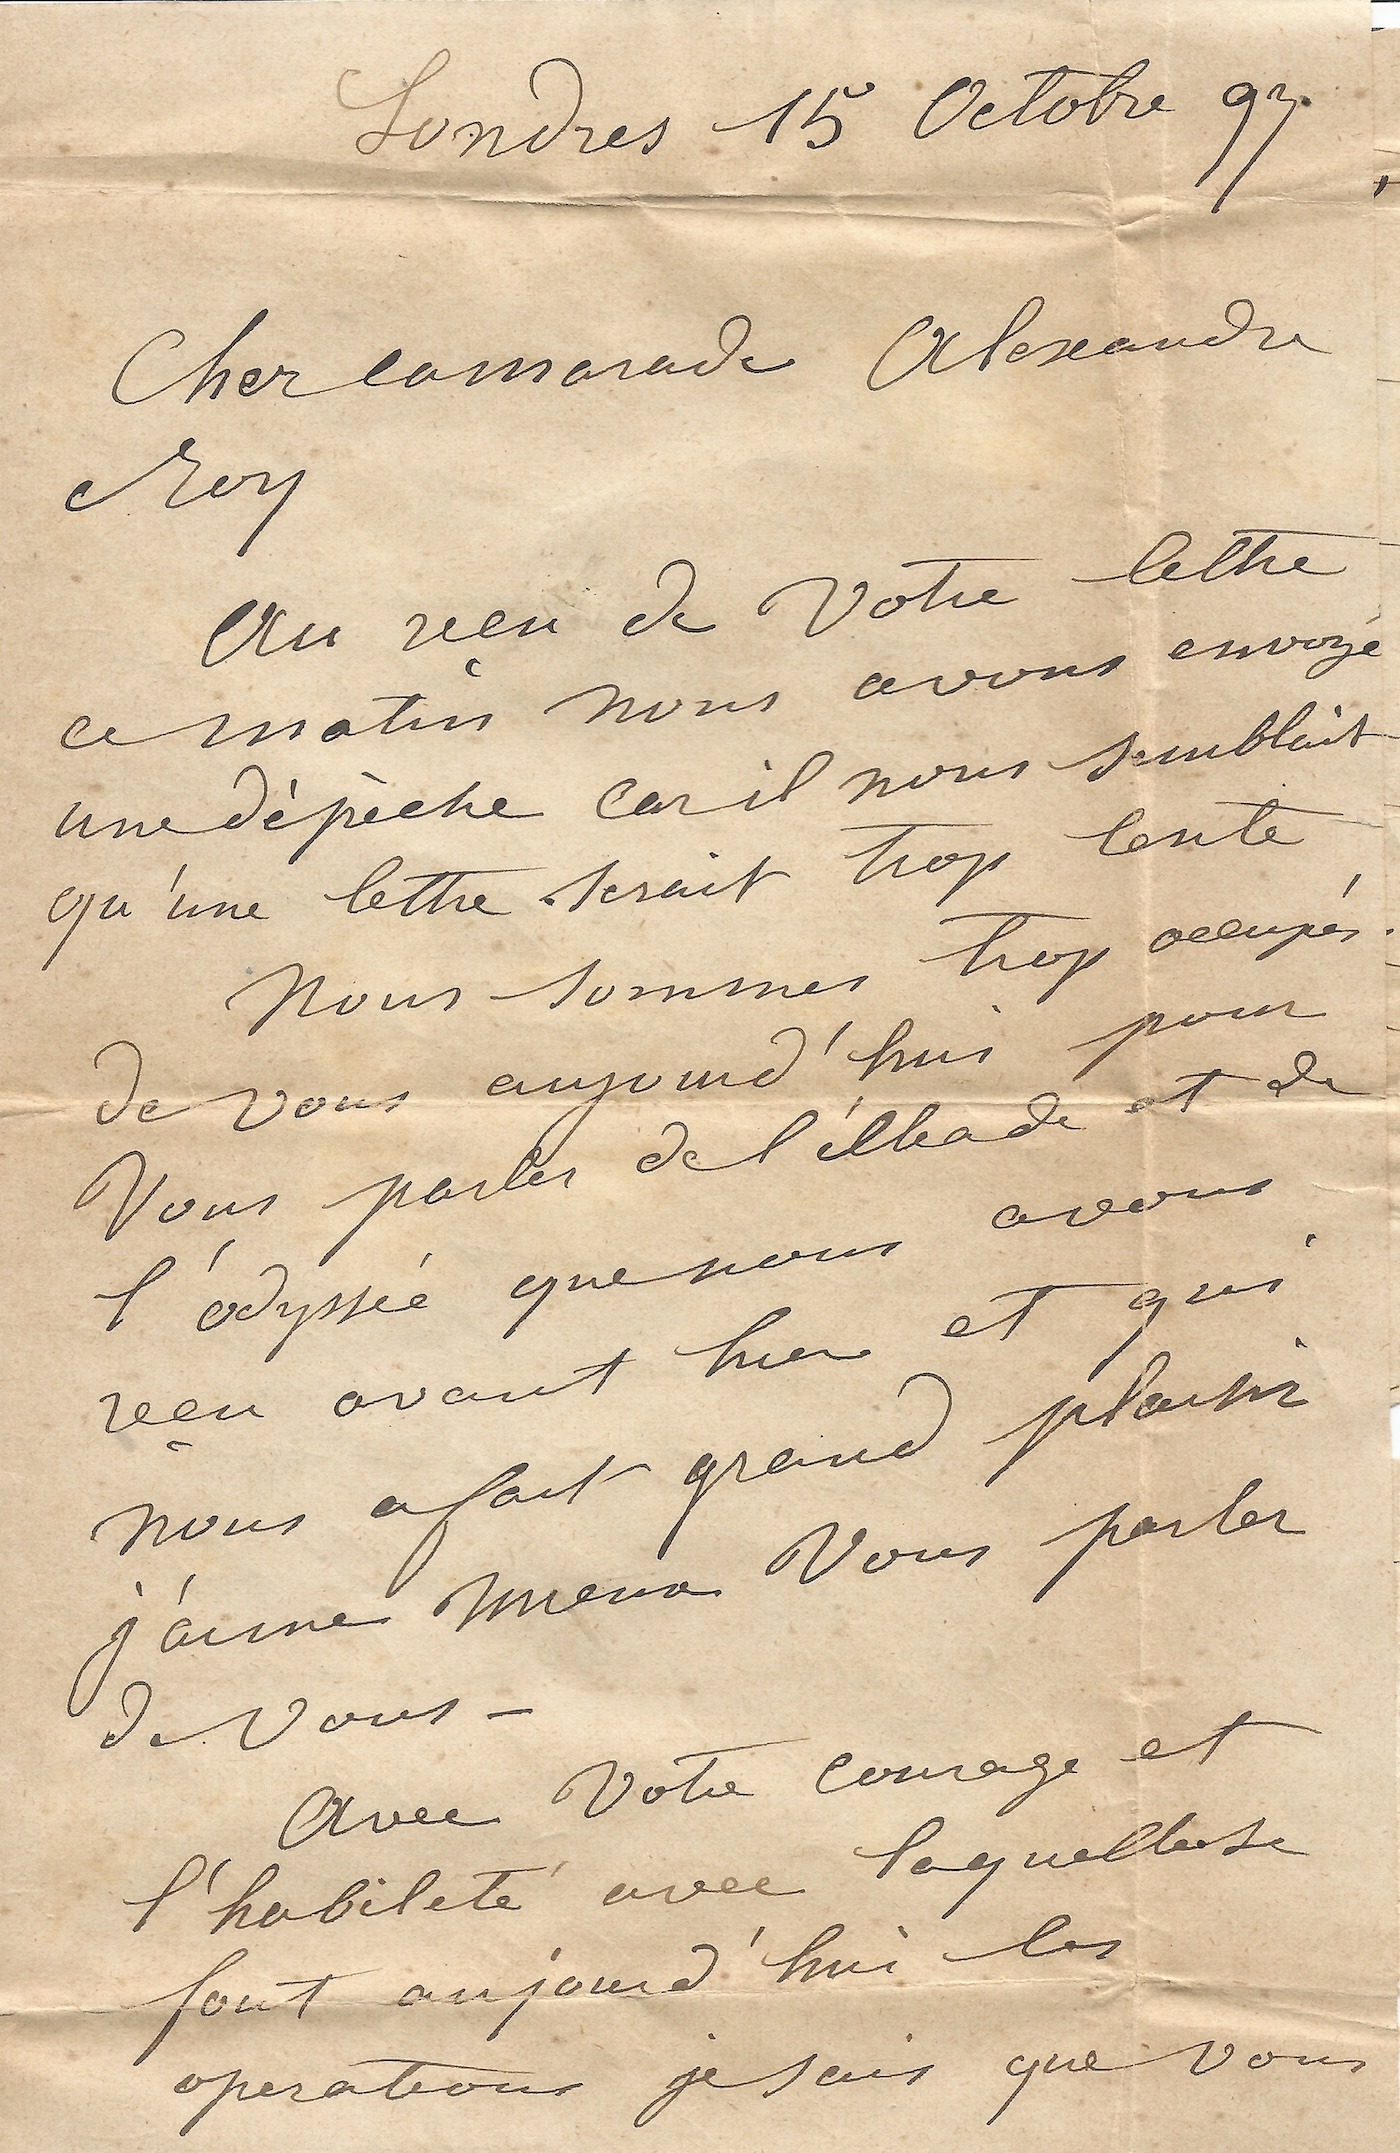 Londres 15 Octobre 97.
Cher camarade Alexandre
Roy
Au reçu de Votre lettre
ce matin nous avons envoyé
une dépèche car il nous semblait
qu'une lettre serait trop lente
Nous sommes trop occupés
de vous aujourd'hui pour
Vous parler de l'illiade et de
l'odyssée que nous avons
reçu avant hier et qui
nous a fait grand plaisir
j'aime mieux Vous parler
de Vous —
Avec Votre courage et
l'habileté avec laquelle se
font aujourd'hui les
operations je sais que vous